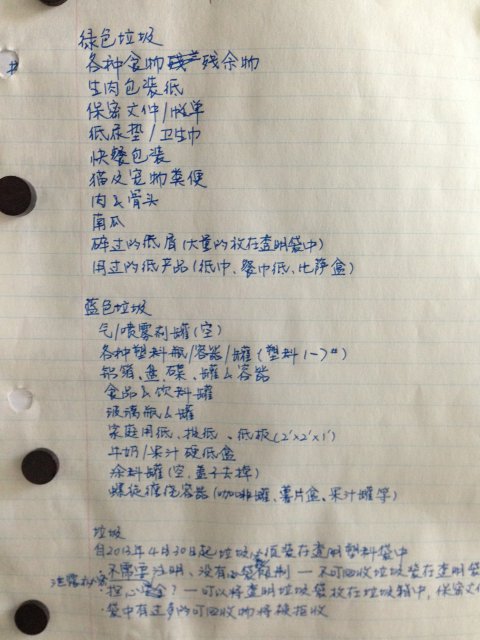 绿色垃圾
各种食物残余物
生肉包装纸
保密文件/帐单
纸尿垫/卫生巾
快餐包装
猫及宠物粪便
肉&骨头
南瓜
碎过的纸屑(大量的放在透明袋中)
用过的纸产品(纸巾、餐巾纸、比萨盒)
蓝色垃圾
气/喷雾剂罐(空)
各种塑料瓶/容器/罐(塑料1-7#)
铝箔、盘、碟、罐&容器
食品&饮料罐
玻璃瓶&罐
家庭用纸、报纸、纸板(2'x2'x1')
牛奶/果汁硬纸盒
涂料罐(空,盖子去掉)
螺旋缠绕容器(咖啡罐、薯片盒、果汁罐等)
垃圾
自2013年4月30日起垃圾必须装在透明塑料袋中
·不需要注明、没有袋限制—不可回收垃圾装在透明袋
·担心?—可以将透明垃圾袋放在垃圾箱中,保密文
·袋中有过多的可回收物将被拒收